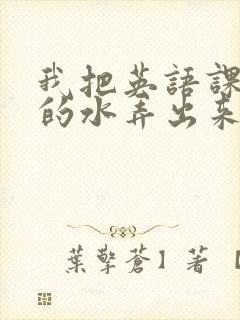 我把英語課
的水弄出來
葉擎蒼】著【